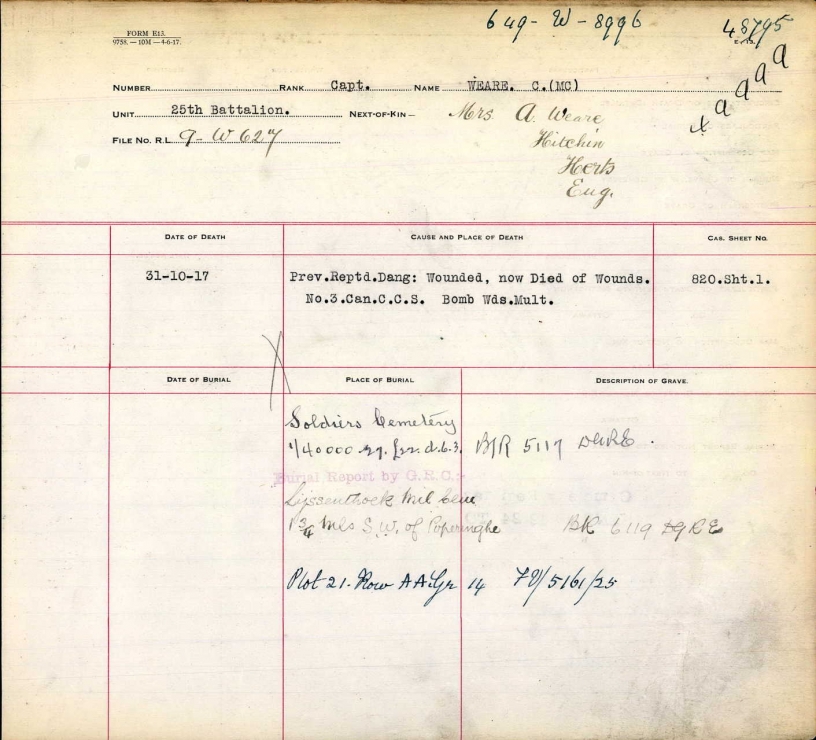 649-W-8996
48795
FORM E13.
9758.—10M—4-6-17.
a a a a
NUMBER RANK Capt. NAME WEARE. C.(MC)
UNIT 25th Battalion. NEXT-OF-KIN— Mrs A. Weare
Hitchin
FILE NO. R.L. 9-W627
Herts
Eng.
DATE OF DEATH CAUSE AND PLACE OF DEATH CAS. SHEET NO.
31-10-17 Prev.Reptd.Dang: Wounded, now Died of Wounds. 820.Sht.1.
No.3.Can.C.C.S. Bomb Wds.Mult.
DATE OF BURIAL PLACE OF BURIAL DESCRIPTION OF GRAVE.
Soldiers Cemetery
1/40000 27. d.6.3. B/R 5117 DGRE.
Burial Report by G.R.C.:-
Lijssenthoek Mil Cem
1 3/4 Mls S.W. of Poperinghe BR 6119 DGRE
Plot 21. Row AA Gr 14 /5161/25